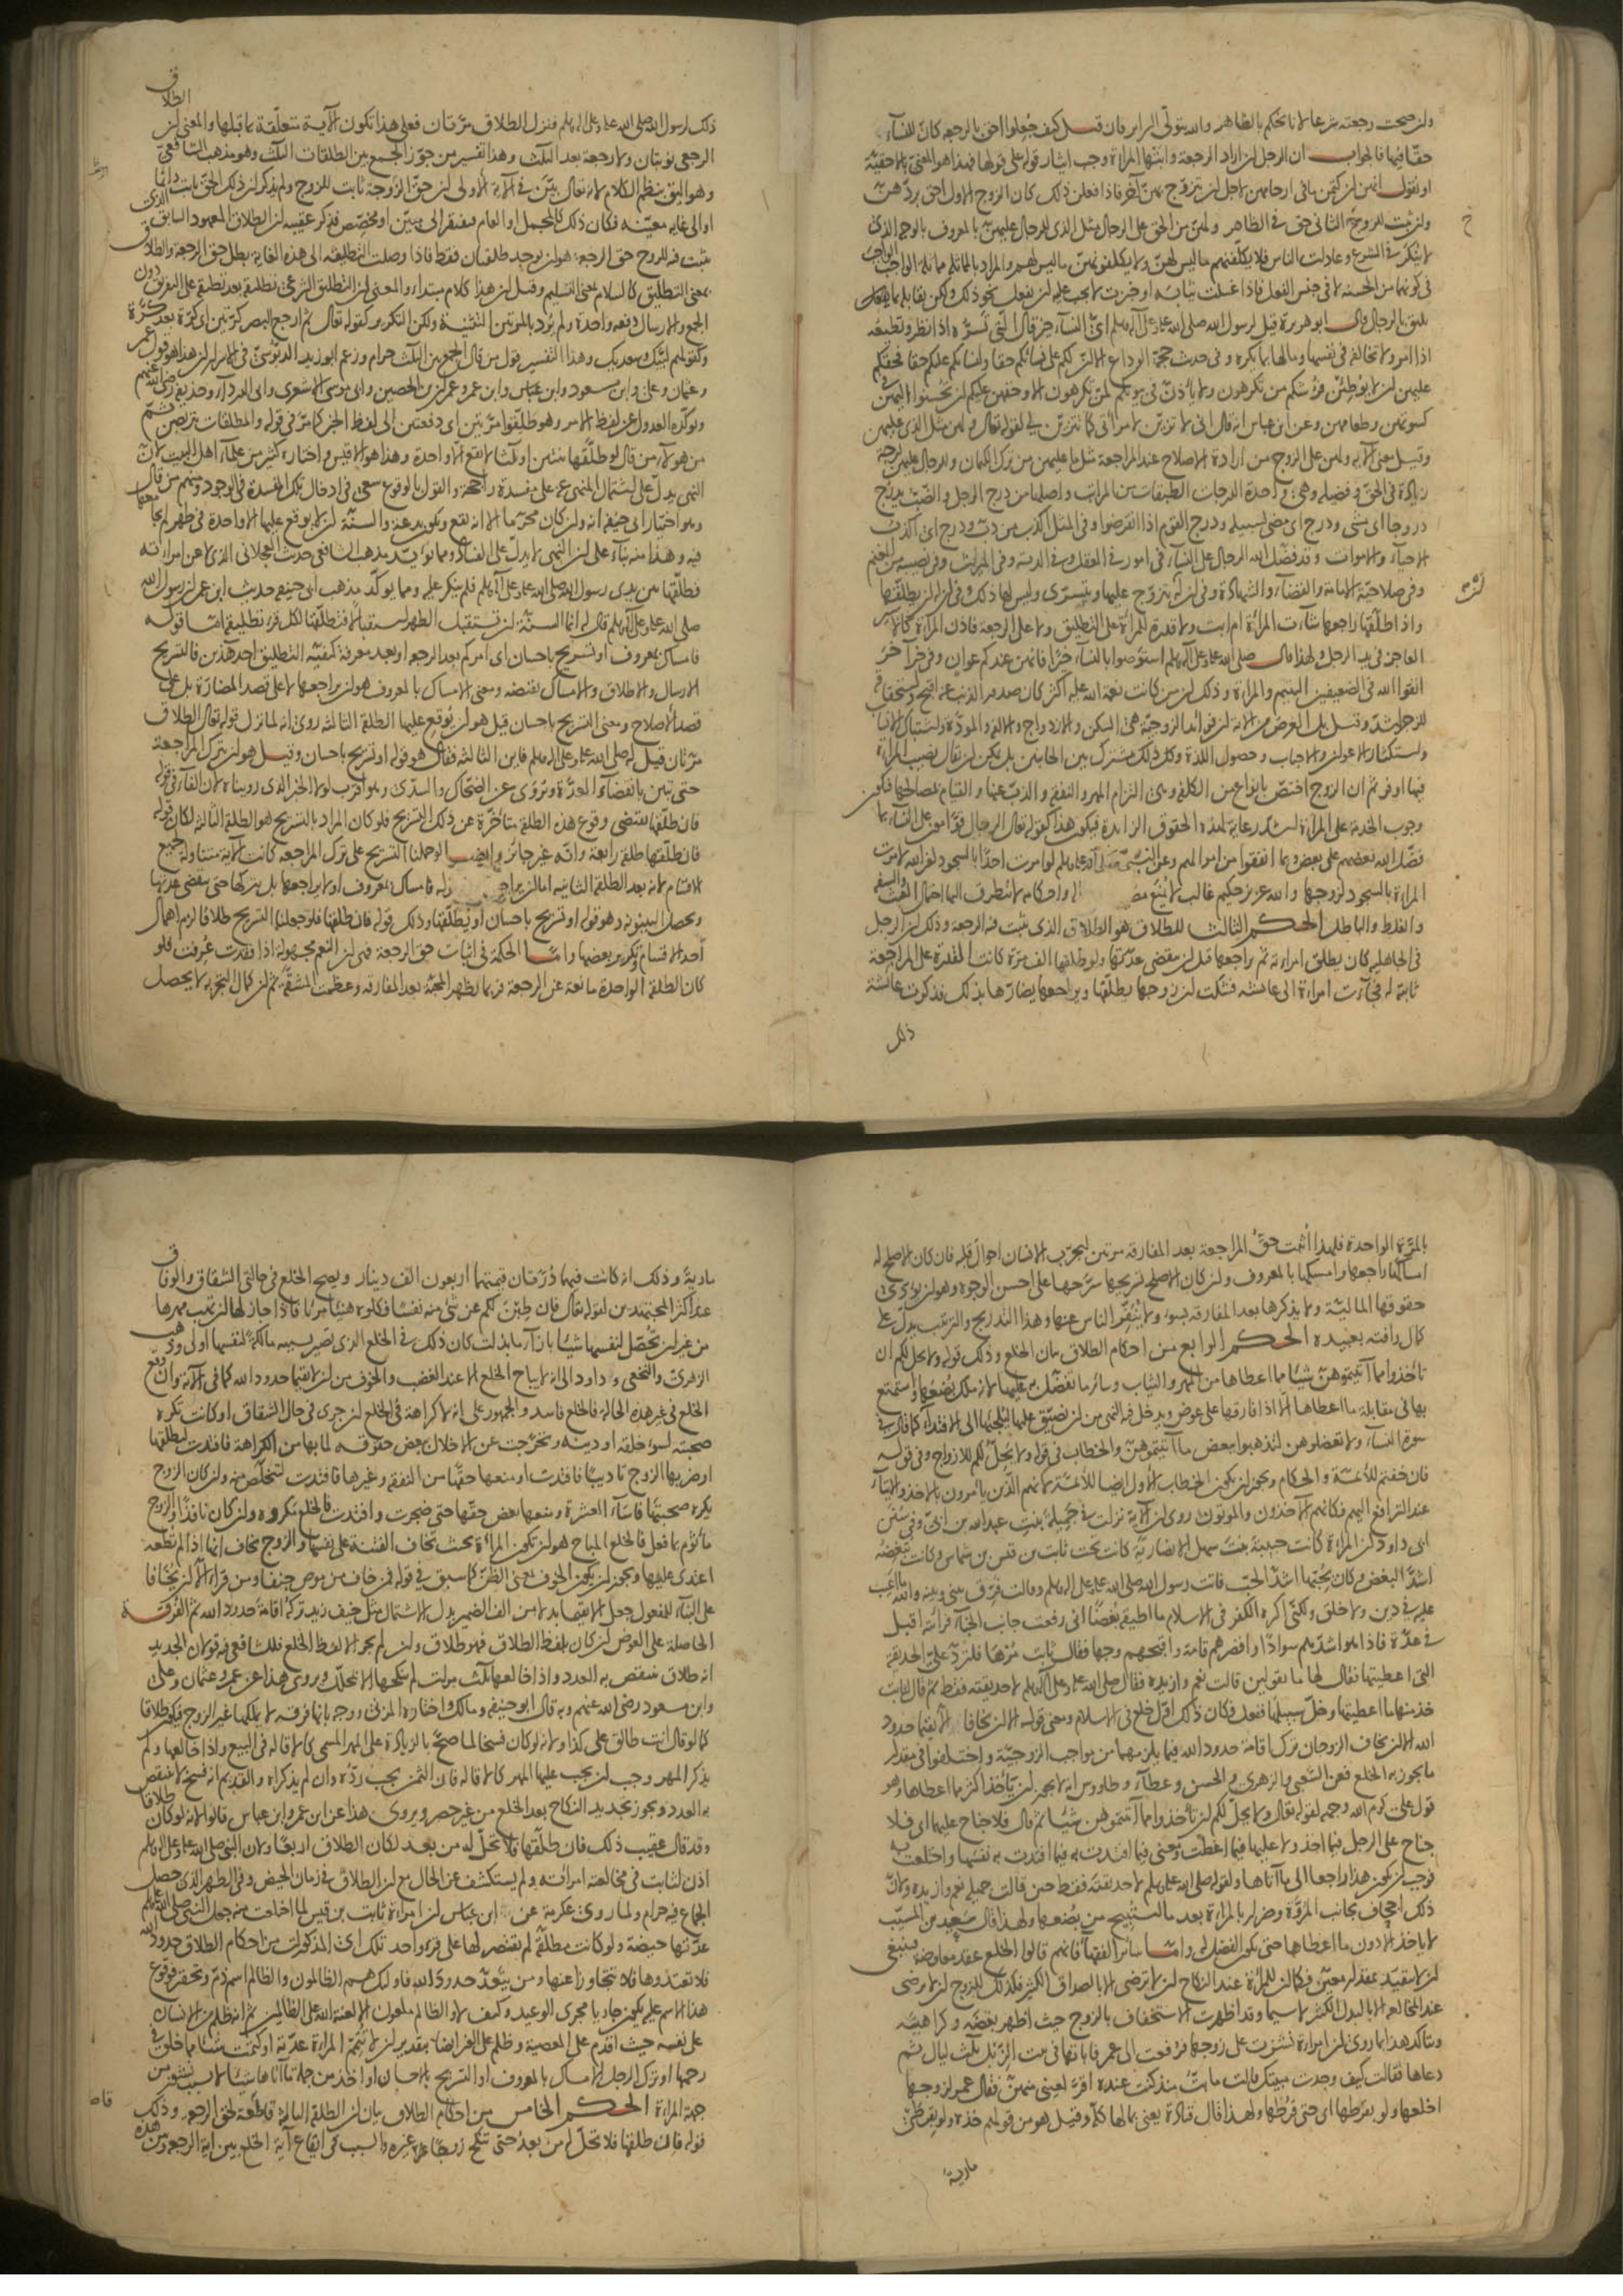 ولن صحت رجعته شرعا لانا نحكم بالظاهر والله يتولى السرائر فان قيل كيف جعلوا احق بالرجعة كان للنساء
حقا فيها فالجواب ان الرجل لن اراد الرجعة وابتها المرأة وجب ايثار قوله على قولها فهذا هو المعنى بالاحقية
او نقول انهن لن كتمن ما في ارحامهن لاجل لن يتزوج بهن آخر فاذا فعلن ذلك كان الزوج الاول احق بردهن
ولن ثبت للزوج الثاني حق في الظاهر ولهن من الحق على الرجال مثل الذي للرجال عليهن بالمعروف بالوجه الذي
لا ينكر في الشرع وعادات الناس فلا يكلفنهم ما ليس لهن ولا يكلفونهن ما ليس لهم والمراد بالمماثلة مماثلة الواجب الواجب
في كونها من الحسنة لا في جنس الفعل فاذا غسلت ثيابه او خبزت لا يجب عليه لن يفعل نحو ذلك ولكن يقابله بما
يليق بالرجال قال ابو هريرة قيل لرسول الله صلى الله عليه وعلى آله وسلم اي النساء خير قال التي تسره اذا نظر وتطيعه
اذا امر ولا تخالفه في نفسها ومالها بما يكره وفي حديث حجة الوداع الا لن لكم على نسائكم حقا ولنسائكم عليكم حقا فحقكم
عليهن لن لا يوطئن فرشكم من تكرهون ولا يأذن في بيوتكم لمن تكرهون الا وحقهن عليكم لن تحسنوا اليهن في
كسوتهن وطعامهن وعن ابن عباس انه قال اني لا تزين لامرأتي كما تتزين لي لقوله تعالى ولهن مثل الذي عليهن
وقيل معنى الآية ولهن على الزوج من ارادة الاصلاح عند المراجعة مثل ما عليهن من ترك الكتمان وللرجال عليهن درجة
زيادة في الحق وفضيلة وهي واحدة الدرجات الطبقات من المراتب واصلها من درج الرجل والضب يدرج
دروجا اي مشى ودرج اي مضى لسبيله ودرج القوم اذا انقرضوا وفي المثل اكذب من دب ودرج اي اكذب
الاحياء والاموات وقد فضل الله الرجال على النساء في امور في العقل وفي الدية وفي الميراث وفي نصيب من المغنم
وفي صلاحية الامامة والقضاء والشهادة وفي لن له يتزوج عليها ويتسرى وليس لها ذلك وفي لن له لن يطلقها
واذا طلقها راجعها شاءت المرأة ام ابت ولا قدرة للمرأة على التطليق ولا على الرجعة فاذن المرأة كالاسير
العاجز في يد الرجل ولهذا قال صلى الله عليه وعلى آله وسلم استوصوا بالنساء خيرا فانهن عندكم عوان وفي خبر آخر
اتقوا الله في الضعيفين اليتيم والمرأة وذلك لن من كانت نعمة الله عليه اكثر كان صدور الذنب عنه اقبح واستحقاقه
للزجر اشد وقيل بل الغرض من الآية لن فوائد الزوجية هي السكن والازدواج والالفة والمودة واشتباك الانساب
واستكثار الاعوان والاحباب وحصول اللذة وكل ذلك مشترك بين الجانبين بل يمكن لن يقال نصيب المرأة
فيها اوفر ثم ان الزوج اختص بانواع من الكلفة وهي التزام المهر والنفقة والذب عنها والقيام بمصالحها فيكون
وجوب الخدمة على المرأة اشد رعاية لهذه الحقوق الزائدة فيكون هذا كقوله تعالى الرجال قوامون على النساء بما
فضل الله بعضهم على بعض وبما انفقوا من اموالهم وعن النبي صلى الله عليه وسلم لو امرت احدا بالسجود لغير الله لامرت
المرأة بالسجود لزوجها والله عزيز حكيم غالب لا يمنع واحكامه لا يتطرق اليها احتمال العبث والسفه
والغلط والباطل الحكم الثالث للطلاق هو الطلاق الذي يثبت فيه الرجعة وذلك لن الرجل
في الجاهلية كان يطلق امرأته ثم راجعها قبل لن تنقضي عدتها ولو طلقها الف مرة كانت القدرة على المراجعة
ثابتة له فجاءت امرأة الى عائشة فشكت لن زوجها يطلقها ويراجعها يضارها بذلك فذكرت عائشة
ذلك
الطلاق
ذلك لرسول الله صلى الله عليه وعلى آله وسلم فنزل الطلاق مرتان فعلى هذا تكون الآية متعلقة بما قبلها والمعنى لن
الرجعي ثنتان ولا رجعة بعد الثلث وهذا تفسير من جوز الجمع بين الطلقات الثلث وهو مذهب الشافعي
وهو اليق بنظم الكلام لانه تعالى بين في الآية الاولى لن حق الزوجة ثابت للزوج ولم يذكر لن ذلك الحق ثابت دائما
او الى غاية معينة فكان ذلك كالمجمل او العام فيفتقر الى مبين او مخصص فذكر عقيبه لن الطلاق المعهود السابق الذي
يثبت فيه للزوج حق الرجعة هو لن يوجد طلقتان فقط فاذا وصلت التطليقة الى هذه الغاية بطل حق الرجعة والطلاق
بمعنى التطليق كالسلام بمعنى التسليم وقيل لن هذا كلام مبتدأ والمعنى لن التطليق الشرعي تطليقة بعد تطليقة على التفريق دون
الجمع والارسال دفعة واحدة ولم يرد بالمرتين التثنية ولكن التكرير كقوله تعالى ثم ارجع البصر كرتين اي كرة بعد كرة
وكقولهم لبيك وسعديك وهذا التفسير قول من قال الجمع بين الثلث حرام وزعم ابو زيد الدبوسي في الاسرار لن هذا هو قول عمر
وعثمان وعلي وابن مسعود وابن عباس وابن عمر وعمران بن الحصين وابي موسى الاشعري وابي الدرداء وحذيفة رضي الله عنهم
ويؤكده العدول عن لفظ الامر وهو طلقوا مرتين اي دفعتين الى لفظ الخبر كما مر في قوله والمطلقات يتربصن ثم
من هؤلاء من قال لو طلقها ثنتين او ثلثا لا تقع الا واحدة وهذا هو الاقيس واختاره كثير من علماء اهل البيت لان
النهي يدل على اشتمال المنهي عنه على مفسدة راجحة والقول بالوقوع سعي في ادخال تلك المفسدة في الوجود ومنهم من قال
وهو اختيار ابي حنيفة انه ولن كان محرما الا انه يقع ويكون بدعة والسنة لن لا يوقع عليها الا واحدة في طهر لم يجامعها
فيه وهذا منه بناء على لن النهي لا يدل على الفساد ومما يؤيد مذهب الشافعي حديث العجلاني الذي لاعن امرأته
فطلقها بين يدي رسول الله صلى الله عليه وعلى آله وسلم فلم ينكر عليه ومما يؤكد مذهب ابي حنيفة حديث ابن عمر لن رسول الله
صلى الله عليه وعلى آله وسلم قال له انما السنة لن تستقبل الطهر استقبالا فتطلقها لكل قرء تطليقة اما قوله
فامساك بمعروف او تسريح باحسان اي امركم بعد الرجعة او بعد معرفة كيفية التطليق احد هذين فالتسريح
الارسال والاطلاق والامساك نقيضه ومعنى الامساك بالمعروف هو لن يراجعها لا على قصد المضارة بل على
قصد الاصلاح ومعنى التسريح باحسان قيل هو لن يوقع عليها الطلقة الثالثة روي انه لما نزل قوله تعالى الطلاق
مرتان قيل له صلى الله عليه وعلى آله وسلم فاين الثالثة فقال هو قوله او تسريح باحسان وقيل هو لن يترك المراجعة
حتى تبين بانقضاء العدة ويروى عن الضحاك والسدي وهو اقرب لولا الخبر الذي رويناه لان الفاء في قوله
فان طلقها تقتضي وقوع هذه الطلقة متأخرة عن ذلك التسريح فلو كان المراد بالتسريح هو الطلقة الثالثة لكان قوله
فان طلقها طلقة رابعة وانه غير جائز وايضا لو حملنا التسريح على ترك المراجعة كانت الآية متناولة لجميع
الاقسام لانه بعد الطلقة الثانية اما لن يراجعها وله فامساك بمعروف او لا يراجعها بل يتركها حتى تنقضي عدتها
ويحصل البينونة وهو قوله او تسريح باحسان او يطلقها وذلك قوله فان طلقها فلو جعلنا التسريح طلاقا لزم اهمال
احد الاقسام وتكرير بعضها واما الحكمة في اثبات حق الرجعة فهي لن النعم مجهولة اذا فقدت عرفت فلو
كان الطلقة الواحدة مانعة عن الرجعة فربما يظهر المحبة بعد المفارقة وعظمت المشقة ثم لن كمال التجربة لا يحصل
بالمرة الواحدة فلهذا اثبت حق المراجعة بعد المفارقة مرتين ليجرب الانسان احوال قلبه فان كان الاصلح له
امساكها راجعها وامسكها بالمعروف ولن كان الاصلح تسريحها سرحها على احسن الوجوه وهو لن يؤدي
حقوقها المالية ولا يذكرها بعد المفارقة بسوء ولا ينفر الناس عنها وهذا التدريج والترتيب يدل على
كمال رأفته بعبيده الحكم الرابع من احكام الطلاق بيان الخلع وذلك قوله ولا يحل لكم ان
تأخذوا مما آتيتموهن شيئا مما اعطاها من المهر والثياب وسائر ما تفضل به عليها لانه ملك بضعها واستمتع
بها في مقابلة ما اعطاها الا اذا فارقها على عوض ويدخل فيه النهي من لن يضيق عليها ليلجئها الى الافتداء كما قال في
سورة النساء ولا تعضلوهن لتذهبوا ببعض ما آتيتموهن والخطاب في قوله ولا يحل لكم للازواج وفي قوله
فان خفتم للائمة والحكام ويجوز لن يكون الخطاب الاول ايضا للائمة لانهم الذين يأمرون بالاخذ والايتاء
عند الترافع اليهم فكانهم الآخذون والمؤتون روي لن الآية نزلت في جميلة بنت عبد الله بن ابي وفي سنن
ابي داود لن المرأة كانت حبيبة بنت سهل الانصارية كانت تحت ثابت بن قيس بن شماس وكانت تبغضه
اشد البغض وكان يحبها اشد الحب فاتت رسول الله صلى الله عليه وعلى آله وسلم وقالت فرق بيني وبينه والله ما اعيب
عليه في دين ولا خلق ولكني اكره الكفر في الاسلام ما اطيقه بغضا اني رفعت جانب الخباء فرأيته اقبل
في عدة فاذا هو اشدهم سوادا واقصرهم قامة واقبحهم وجها فقال ثابت مرها فلترد علي الحديقة
التي اعطيتها فقال لها ما تقولين قالت نعم وازيده فقال صلى الله عليه وعلى آله وسلم لا حديقته فقط ثم قال لثابت
خذ منها ما اعطيتها وخل سبيلها ففعل فكان ذلك اول خلع في الاسلام ومعنى قوله الا لن يخافا الا يقيما حدود
الله الا لن يخاف الزوجان ترك اقامة حدود الله فيما يلزمهما من مواجب الزوجية واختلفوا في مقدار
ما يجوز به الخلع فعن الشعبي والزهري والحسن وعطاء وطاووس انه لا يجوز لن يأخذ اكثر مما اعطاها وهو
قول علي كرم الله وجهه لقوله تعالى ولا يحل لكم لن تأخذوا مما آتيتموهن شيئا ثم قال فلا جناح عليهما اي فلا
جناح على الرجل فيما اخذ ولا عليها فيما اعطت ومعنى فيما افتدت به فيما افتدت به نفسها واختلعت به
فوجب لن يكون هذا راجعا الى ما آتاها ولقوله صلى الله عليه وسلم لا حديقته فقط حين قالت جميلة نعم وازيده ولان
ذلك اجحاف بجانب المروة وضرار بالمرأة بعد ما استبيح من بضعها ولهذا قال سعيد بن المسيب
لا يأخذ الا دون ما اعطاها حتى يكون الفضل له واما سائر الفقهاء فانهم قالوا الخلع عقد معاوضة فينبغي
لن لا يتقيد بمقدار معين فكما لن للمرأة عند النكاح لن لا ترضى الا بالصداق الكثير فكذلك للزوج لن لا يرضى
عند المخالعة الا بالبدل الكثير لا سيما وقد اظهرت الاستخفاف بالزوج حيث اظهر بغضه وكراهيته
ويتأكد هذا بما روي لن امرأة نشزت على زوجها فرفعت الى عمر فاباتها في بيت الزبل ثلث ليال ثم
دعاها فقالت كيف وجدت مبيتك قالت ما بت منذ كنت عنده اقر لعيني منهن فقال عمر لزوجها
اخلعها ولو بقرطها اي حتى قرطها ولهذا قال قتادة يعني بمالها كله وقيل هو من قولهم خذه ولو بقرطي
مارية
مارية وذلك انه كانت فيهما درتان قيمتهما اربعون الف دينار ويصح الخلع في حالتي الشقاق والوفاق
عند اكثر المجتهدين لقوله تعالى فان طبن لكم عن شيء منه نفسا فكلوه هنيئا مريئا فاذا جاز لها لن تهب مهرها
من غير لن تحصل لنفسها شيئا بازاء ما بذلت كان ذلك في الخلع الذي تصير بسببه مالكة لنفسها اولى وذهب
الزهري والنخعي وداود الى انه لا يباح الخلع الا عند الغضب والخوف من لن لا يقيما حدود الله كما في الآية وان وقع
الخلع في غير هذه الحالة فالخلع فاسد والجمهور على انه لا كراهة في الخلع لن جرى في حال الشقاق او كانت تكره
صحبته لسوء خلقه او دينه وتحرجت عن الاخلال ببعض حقوقه لما بها من الكراهة فافتدت ليطلقها
او ضربها الزوج تأديبا فافتدت او منعها حقها من النفقة وغيرها فافتدت لتتخلص منه ولن كان الزوج
يكره صحبتها فاساء العشرة ومنعها بعض حقها حتى ضجرت وافتدت فالخلع مكروه ولن كان نافذا والزوج
مأثوم بما فعل فالخلع المباح هو لن تكون المرأة بحيث تخاف الفتنة على نفسها والزوج يخاف انها اذا لم تطعه
اعتدى عليها ويجوز لن يكون الخوف بمعنى الظن كما سبق في قوله فمن خاف من موص جنفا ومن قرأ الا لن يخافا
على البناء للمفعول جعل الا يقيما بدلا من الف الضمير بدل الاشتمال مثل خيف زيد تركه اقامة حدود الله ثم الفرقة
الحاصلة على العوض لن كان بلفظ الطلاق فهو طلاق ولن لم يجر الا لفظ الخلع فللشافعي فيه قولان الجديد
انه طلاق ينتقص به العدد واذا خالعها ثلث مرات لم ينكحها الا بمحلل ويروى هذا عن عمر وعثمان وعلي
وابن مسعود رضي الله عنهم وبه قال ابو حنيفة ومالك واختاره المزني ووجه بانها فرقة لا يملكها غير الزوج فيكون طلاقا
كما لو قال انت طالق على كذا ولانه لو كان فسخا لما صح بالزيادة على المهر المسمى كالاقالة في البيع واذا خالعها ولم
يذكر المهر وجب لن يجب عليها المهر كالاقالة فان الثمن يجب رده وان لم يذكراه والقديم انه فسخ لا ينتقص
به العدد ويجوز تجديد النكاح بعد الخلع من غير حصر ويروى هذا عن ابن عمر وابن عباس قالوا لانه لو كان طلاقا
وقد قال عقيب ذلك فان طلقها فلا تحل له من بعد لكان الطلاق اربعا ولان النبي صلى الله عليه وعلى آله وسلم
اذن لثابت في مخالعة امرأته ولم يستكشف عن الحال مع لن الطلاق في زمان الحيض وفي الطهر الذي حصل
الجماع فيه حرام ولما روى عكرمة عن ابن عباس لن امرأة ثابت بن قيس لما اختلعت منه جعل النبي صلى الله عليه وسلم
عدتها حيضة ولو كانت مطلقة لم يقتصر لها على قرء واحد تلك اي المذكورات من احكام الطلاق حدود الله
فلا تعتدوها فلا تتجاوزوا عنها ومن يتعد حدود الله فاولئك هم الظالمون والظالم اسم ذم وتحقير فوقوع
هذا الاسم عليه يكون جاريا مجرى الوعيد وكيف لا والظالم ملعون الا لعنة الله على الظالمين ثم انه ظلم من الانسان
على نفسه حيث اقدم على المعصية وظلم على الغير ايضا بتقدير لن لا تتم المرأة عدته او كتمت شيئا مما خلق في
رحمها او ترك الرجل الامساك بالمعروف او التسريح باحسان او اخذ من جملة ما آتاها شيئا لا بسبب نشوز من
جهة المرأة الحكم الخامس من احكام الطلاق بيان لن الطلقة الثالثة قاطعة لحق الرجعة وذلك
قوله فان طلقها فلا تحل له من بعد حتى تنكح زوجا غيره والسبب في ايقاع آية الخلع بين آية الرجعة وبين هذه